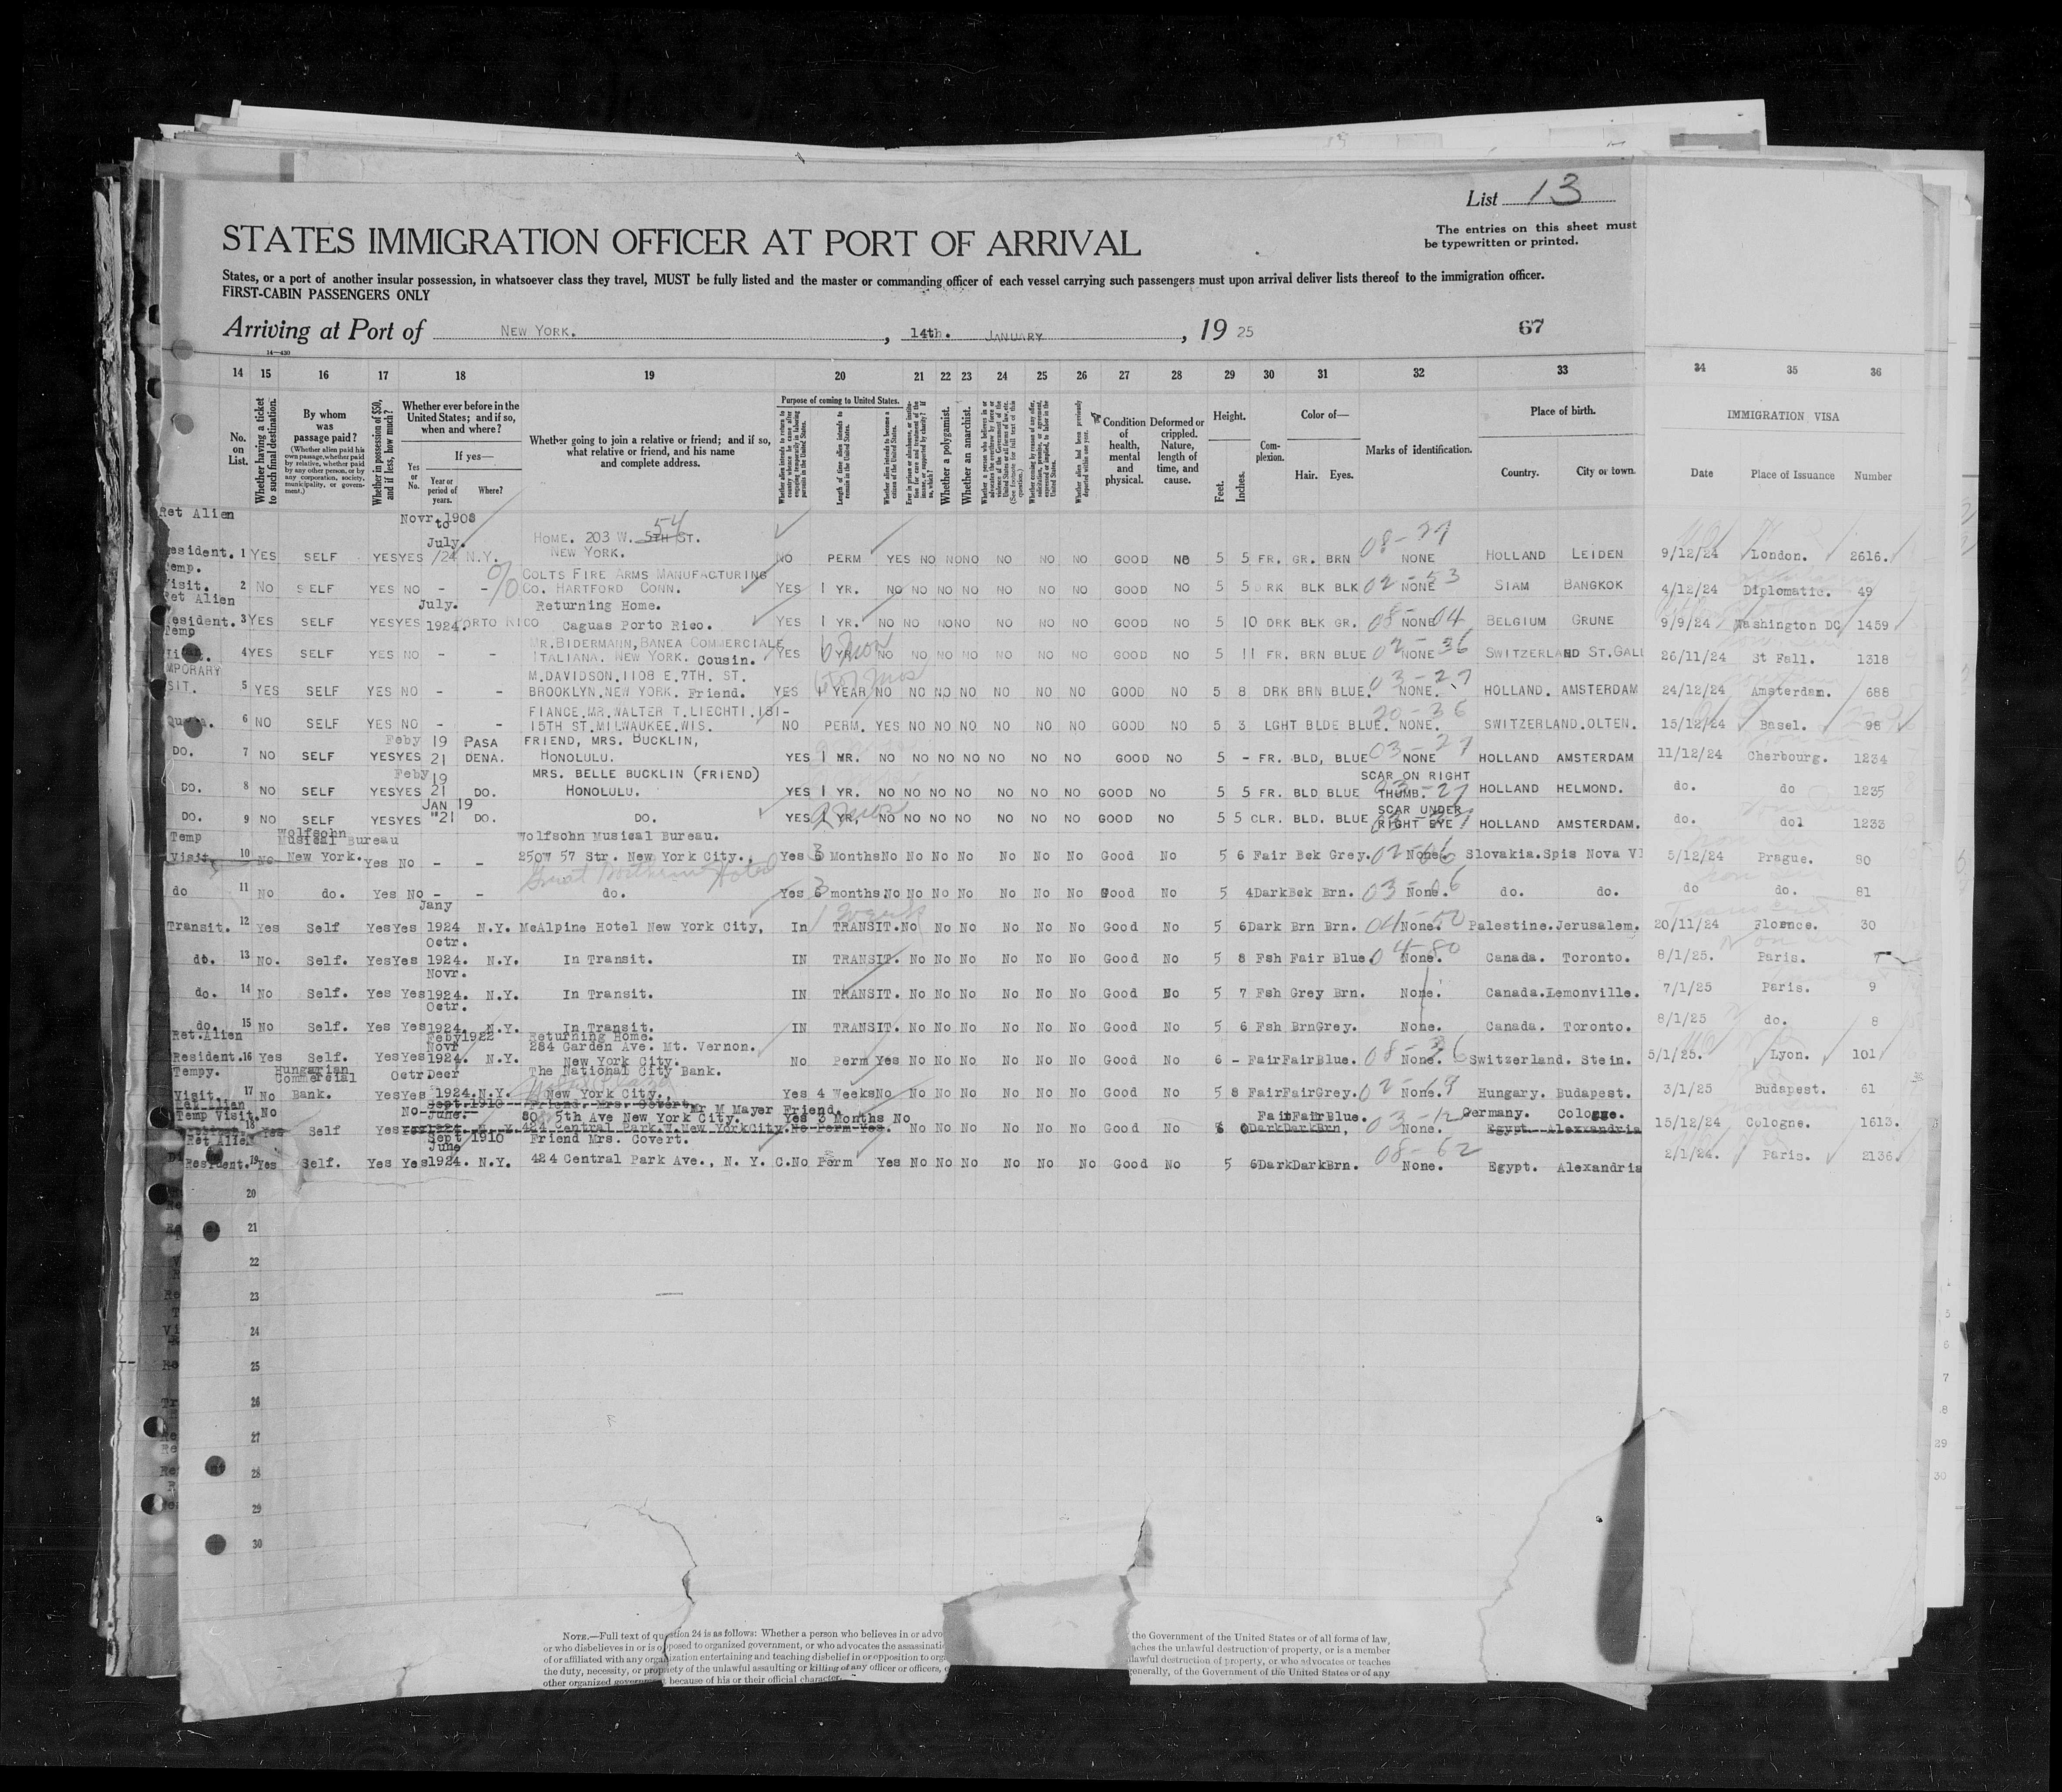 List 13
The entries on this sheet must
be typewritten or printed.
STATES IMMIGRATION OFFICER AT PORT OF ARRIVAL
States, or a port of another insular possession, in whatsoever class they travel, MUST be fully listed and the master or commanding officer of each vessel carrying such passengers must upon arrival deliver lists thereof to the immigration officer.
FIRST-CABIN PASSENGERS ONLY
Arriving at Port of NEW YORK. , 14th. JANUARY , 19 25
67
14—430
14 15 16 17 18 19 20 21 22 23 24 25 26 27 28 29 30 31 32 33 34 35 36
No. on List.
Whether having a ticket to such final destination.
By whom was passage paid?
(Whether alien paid his own passage, whether paid by relative, whether paid by any other person, or by any corporation, society, municipality, or government.)
Whether in possession of $50, and if less, how much?
Whether ever before in the United States; and if so, when and where?
Yes or No.
If yes—
Year or period of years.
Where?
Whether going to join a relative or friend; and if so, what relative or friend, and his name and complete address.
Purpose of coming to United States.
Length of time alien intends to remain in the United States.
Whether alien intends to become a citizen of the United States.
Whether a polygamist.
Whether an anarchist.
Condition of health, mental and physical.
Deformed or crippled. Nature, length of time, and cause.
Height.
Feet.
Inches.
Complexion.
Color of—
Hair. Eyes.
Marks of identification.
Place of birth.
Country. City or town.
IMMIGRATION VISA
Date Place of Issuance Number
Ret Alien Novr. 1908 to July. HOME. 203 W. 5TH ST. 54
esident. 1 YES SELF YES YES /24 N.Y. NEW YORK. NO PERM YES NO NO NO NO NO NO GOOD NO 5 5 FR. GR. BRN 08-27 NONE HOLLAND LEIDEN 9/12/24 London. 2616.
Temp. COLTS FIRE ARMS MANUFACTURING
Visit. 2 NO SELF YES NO - - % CO. HARTFORD CONN. YES 1 YR. NO NO NO NO NO NO NO GOOD NO 5 5 DRK BLK BLK 02-53 NONE SIAM BANGKOK 4/12/24 Diplomatic. 49
Ret Alien July. Returning Home.
esident. 3 YES SELF YES YES 1924. PORTO RICO Caguas Porto Rico. YES 1 YR. NO NO NO NO NO NO NO GOOD NO 5 10 DRK BLK GR. 08-04 NONE BELGIUM GRUNE 9/9/24 Washington DC 1459
Temp MR. BIDERMANN, BANEA COMMERCIALE
4 YES SELF YES NO - - ITALIANA. NEW YORK. Cousin. YES 6 mos NO NO NO NO NO NO NO GOOD NO 5 11 FR. BRN BLUE 02-36 NONE SWITZERLAND ST.GALL 26/11/24 St Fall. 1318
MPORARY M. DAVIDSON. 1108 E. 7TH. ST.
SIT. 5 YES SELF YES NO - - BROOKLYN. NEW YORK. Friend. YES YEAR NO NO NO NO NO NO NO GOOD NO 5 8 DRK BRN BLUE. 03-27 NONE. HOLLAND. AMSTERDAM 24/12/24 Amsterdam. 688
FIANCE. MR. WALTER T. LIECHTI. 181-
6 NO SELF YES NO - - 15TH ST. MILWAUKEE. WIS. NO PERM. YES NO NO NO NO NO NO GOOD NO 5 3 LGHT BLDE BLUE. 20-36 NONE. SWITZERLAND. OLTEN. 15/12/24 Basel. 98
Feby 19 PASA FRIEND, MRS. BUCKLIN,
DO. 7 NO SELF YES YES 21 DENA. HONOLULU. YES 1 YR. NO NO NO NO NO NO NO GOOD NO 5 - FR. BLD, BLUE 03-27 NONE HOLLAND AMSTERDAM 11/12/24 Cherbourg. 1234
Feby 19 MRS. BELLE BUCKLIN (FRIEND) SCAR ON RIGHT
DO. 8 NO SELF YES YES 21 DO. HONOLULU. YES 1 YR. NO NO NO NO NO NO NO GOOD NO 5 5 FR. BLD BLUE THUMB. HOLLAND HELMOND. do. do 1235
JAN 19 SCAR UNDER
DO. 9 NO SELF YES YES "21 DO. DO. YES 1 YR, NO NO NO NO NO NO NO GOOD NO 5 5 CLR. BLD. BLUE RIGHT EYE HOLLAND AMSTERDAM. do. dol 1233
Temp Wolfsohn Musical Bureau Wolfsohn Musical Bureau.
Visit. 10 No New York. Yes No - - 250W 57 Str. New York City., Yes 3 Months No No No No No No No Good No 5 6 Fair Bck Grey. 02-06 None. Slovakia. Spis Nova V 5/12/24 Prague. 80
Great Northern Hotel
do 11 No do. Yes No - - do. Yes 3 months No No No No No No No Good No 5 4 Dark Bck Brn. 03-06 None. do. do. do do. 81
Jany
Transit. 12 Yes Self Yes Yes 1924 N.Y. McAlpine Hotel New York City, In TRANSIT. No No No No No No Good No 5 6 Dark Brn Brn. None. Palestine. Jerusalem. 20/11/24 Florence. 30
Octr.
do. 13 No. Self. Yes Yes 1924. N.Y. In Transit. IN TRANSIT. No No No No No No Good No 5 8 Fsh Fair Blue. 04-80 None. Canada. Toronto. 8/1/25. Paris. 7
Novr.
do. 14 No Self. Yes Yes 1924. N.Y. In Transit. IN TRANSIT. No No No No No No Good No 5 7 Fsh Grey Brn. None. Canada. Lemonville. 7/1/25 Paris. 9
Octr.
do. 15 No Self. Yes Yes 1924. N.Y. In Transit. IN TRANSIT. No No No No No No Good No 5 6 Fsh Brn Grey. None. Canada. Toronto. 8/1/25 do. 8
Ret. Alien Feby 1922 Novr Returning Home. 284 Garden Ave. Mt. Vernon.
Resident. 16 Yes Self. Yes Yes 1924. N.Y. New York City. No Perm Yes No No No No No No Good No 6 - Fair Fair Blue. 08-36 None. Switzerland. Stein. 5/1/25. Lyon. 101
Tempy. Hungarian Commercial Octr Decr The National City Bank.
Visit. 17 No Bank. Yes Yes 1924. N.Y. New York City., Yes 4 Weeks No No No No No No No Good No 5 8 Fair Fair Grey. 02-69 None. Hungary. Budapest. 3/1/25 Budapest. 61
Ret Alien Sept. 1910 Friend. Mrs. Covert. Mr M Mayer Friend.
Temp Visit. No No June. 80 5th Ave New York City. Yes 3 Months No Fair Fair Blue. Germany. Cologne.
18 Yes Self Yes Yes 1924. N.Y. 424 Central Park. W. New York City. No Perm Yes. No No No No No No Good No Dark Dark Brn, 03-12 None. Egypt. Alexxandria 15/12/24 Cologne. 1613.
Ret Alien Sept 1910 June Friend Mrs. Covert.
Resident. 19 Yes Self. Yes Yes 1924. N.Y. 424 Central Park Ave., N. Y. C. No Perm Yes No No No No No No Good No 5 6 Dark Dark Brn. 08-62 None. Egypt. Alexandria 2/1/24. Paris. 2136.
20
21
22
23
24
25
26
27
28
29
30
NOTE.—Full text of question 24 is as follows: Whether a person who believes in or advo
the Government of the United States or of all forms of law,
or who disbelieves in or is opposed to organized government, or who advocates the assassinati
aches the unlawful destruction of property, or is a member
of or affiliated with any organization entertaining and teaching disbelief in or opposition to orga
lawful destruction of property, or who advocates or teaches
the duty, necessity, or propriety of the unlawful assaulting or killing of any officer or officers,
generally, of the Government of the United States or of any
other organized government because of his or their official character